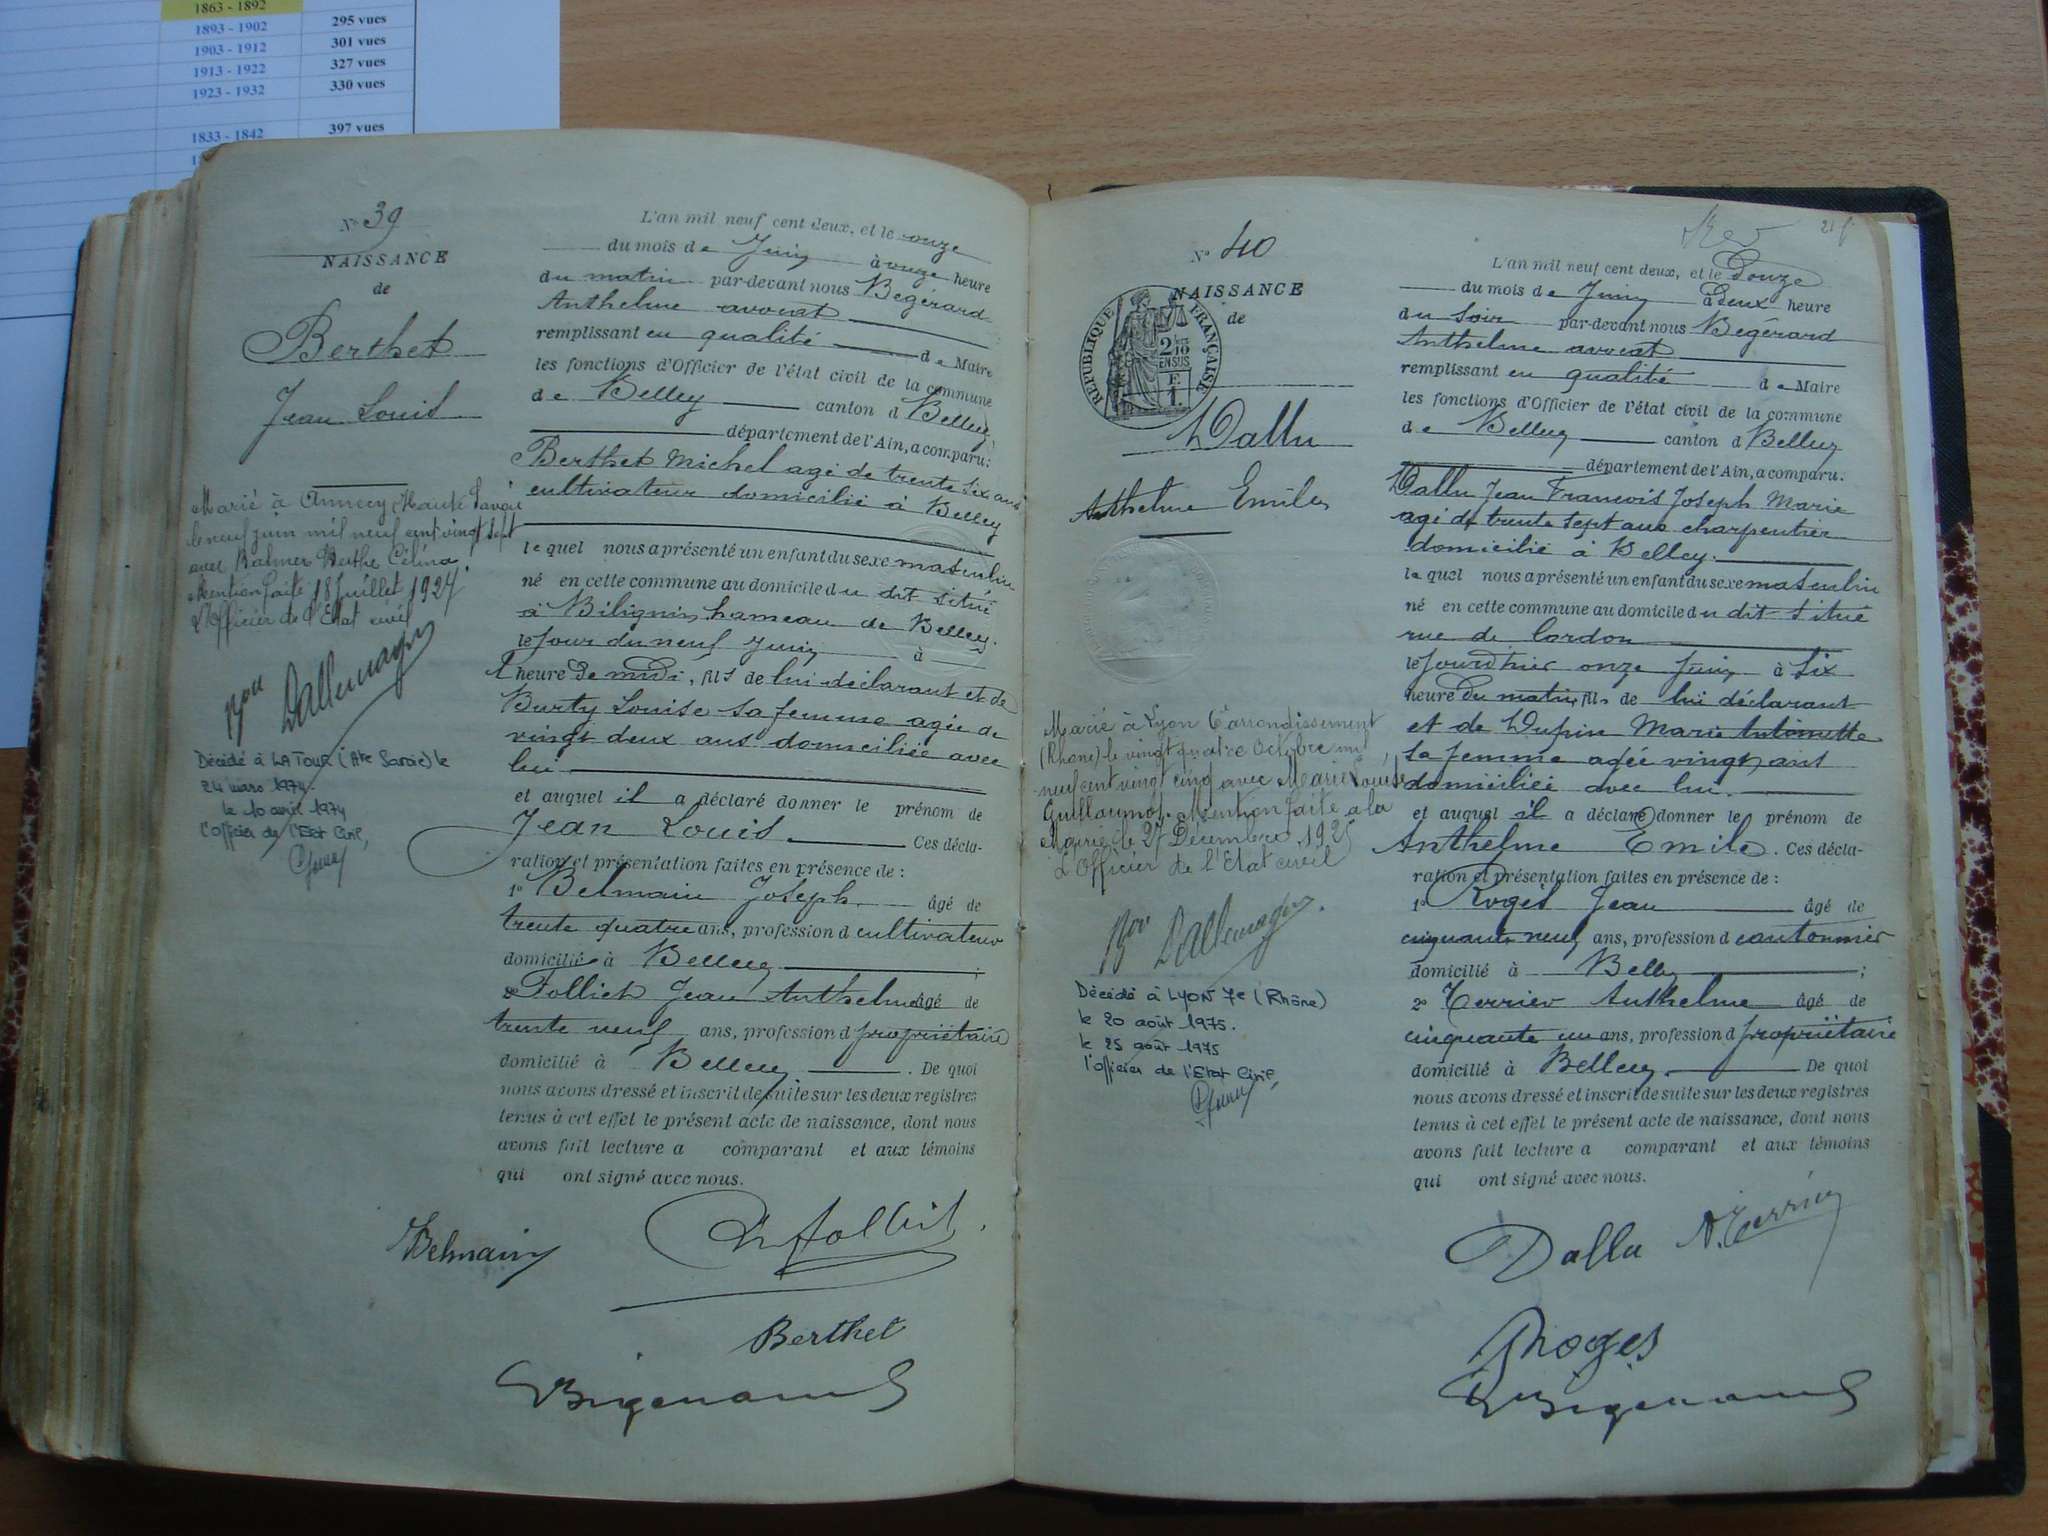 1863 - 1892
1893 - 1902 295 vues
1903 - 1912 301 vues
1913 - 1922 327 vues
1923 - 1932 330 vues
1833 - 1842 397 vues
N° 39
NAISSANCE
de
Berthet
Jean Louis
Marié à Annecy (Haute Savoie
le neuf juin mil neuf cent vingt sept
avec Berthe Célina
Mention faite 18 Juillet 1927
L'Officier de l'Etat civil
Décédé à LA TOUR (Hte Savoie) le
24 mars 1974.
le 10 avril 1974
l'officier de l'Etat Civil,
L'an mil neuf cent deux, et le onze
du mois de Juin à onze heure
du matin par-devant nous Begérard
Anthelme avocat
remplissant en qualité de Maire
les fonctions d'Officier de l'état civil de la commune
de Belley canton d Belley
département de l'Ain, a comparu:
Berthet Michel agé de trente six ans
cultivateur domicilié à Belley
lequel nous a présenté un enfant du sexe masculin
né en cette commune au domicile du dit situé
à Bilignin hameau de Belley.
le jour du neuf Juin à
1 heure de midi, fils de lui déclarant et de
Burty Louise sa femme agée de
vingt deux ans domiciliée avec
lui
et auquel il a déclaré donner le prénom de
Jean Louis Ces décla-
ration et présentation faites en présence de :
1° Belmain Joseph âgé de
trente quatre ans, profession d cultivateur
domicilié à Belley ;
2° Folliet Jean Anthelme âgé de
trente neuf ans, profession d propriétaire
domicilié à Belley . De quoi
nous avons dressé et inscrit de suite sur les deux registres
tenus à cet effet le présent acte de naissance, dont nous
avons fait lecture a comparant et aux témoins
qui ont signé avec nous.
Belmain
Folliet
Berthet
N° 40
NAISSANCE
de
REPUBLIQUE FRANÇAISE
2/10 EN SUS
Dallu
Anthelme Emile
Marié à Lyon 6e arrondissement
(Rhône) le vingt quatre Octobre mil
neuf cent vingt cinq avec Marie Louise
Guillaumot. Mention faite à la
Mairie le 27 Décembre 1925
L'Officier de l'Etat civil
Décédé à LYON 7e (Rhône)
le 20 août 1975.
le 25 août 1975
l'officier de l'Etat Civil,
L'an mil neuf cent deux, et le Douze
du mois de Juin à Deux heure
du Soir par-devant nous Begérard
Anthelme avocat
remplissant en qualité de Maire
les fonctions d'Officier de l'état civil de la commune
de Belley canton d Belley
département de l'Ain, a comparu.
Dallu Jean François Joseph Marie
agé de trente sept ans charpentier
domicilié à Belley.
lequel nous a présenté un enfant du sexe masculin
né en cette commune au domicile du dit situé
rue de Cordon
le jourd'hier onze Juin à six
heure du matin, fils de lui déclarant
et de Dupin Marie Antoinette
sa femme agée vingt ans
domiciliée avec lui.
et auquel il a déclaré donner le prénom de
Anthelme Emile. Ces décla-
ration et présentation faites en présence de :
1° Rogès Jean âgé de
cinquante neuf ans, profession d cantonnier
domicilié à Belley ;
2° Terrier Anthelme âgé de
cinquante un ans, profession d propriétaire
domicilié à Belley. De quoi
nous avons dressé et inscrit de suite sur les deux registres
tenus à cet effet le présent acte de naissance, dont nous
avons fait lecture a comparant et aux témoins
qui ont signé avec nous.
Dallu A. Terrier
Roges